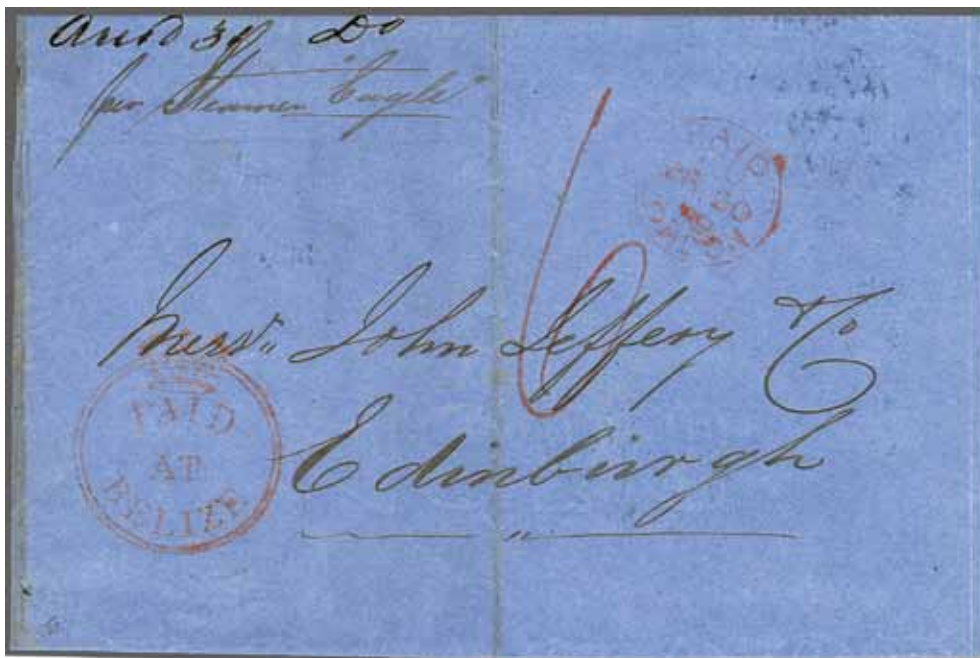 Do
per Steamer "Eagle"
PAID
20
6
Messrs John Jeffery & Co
Edinburgh
PAID
AT
BELIZE